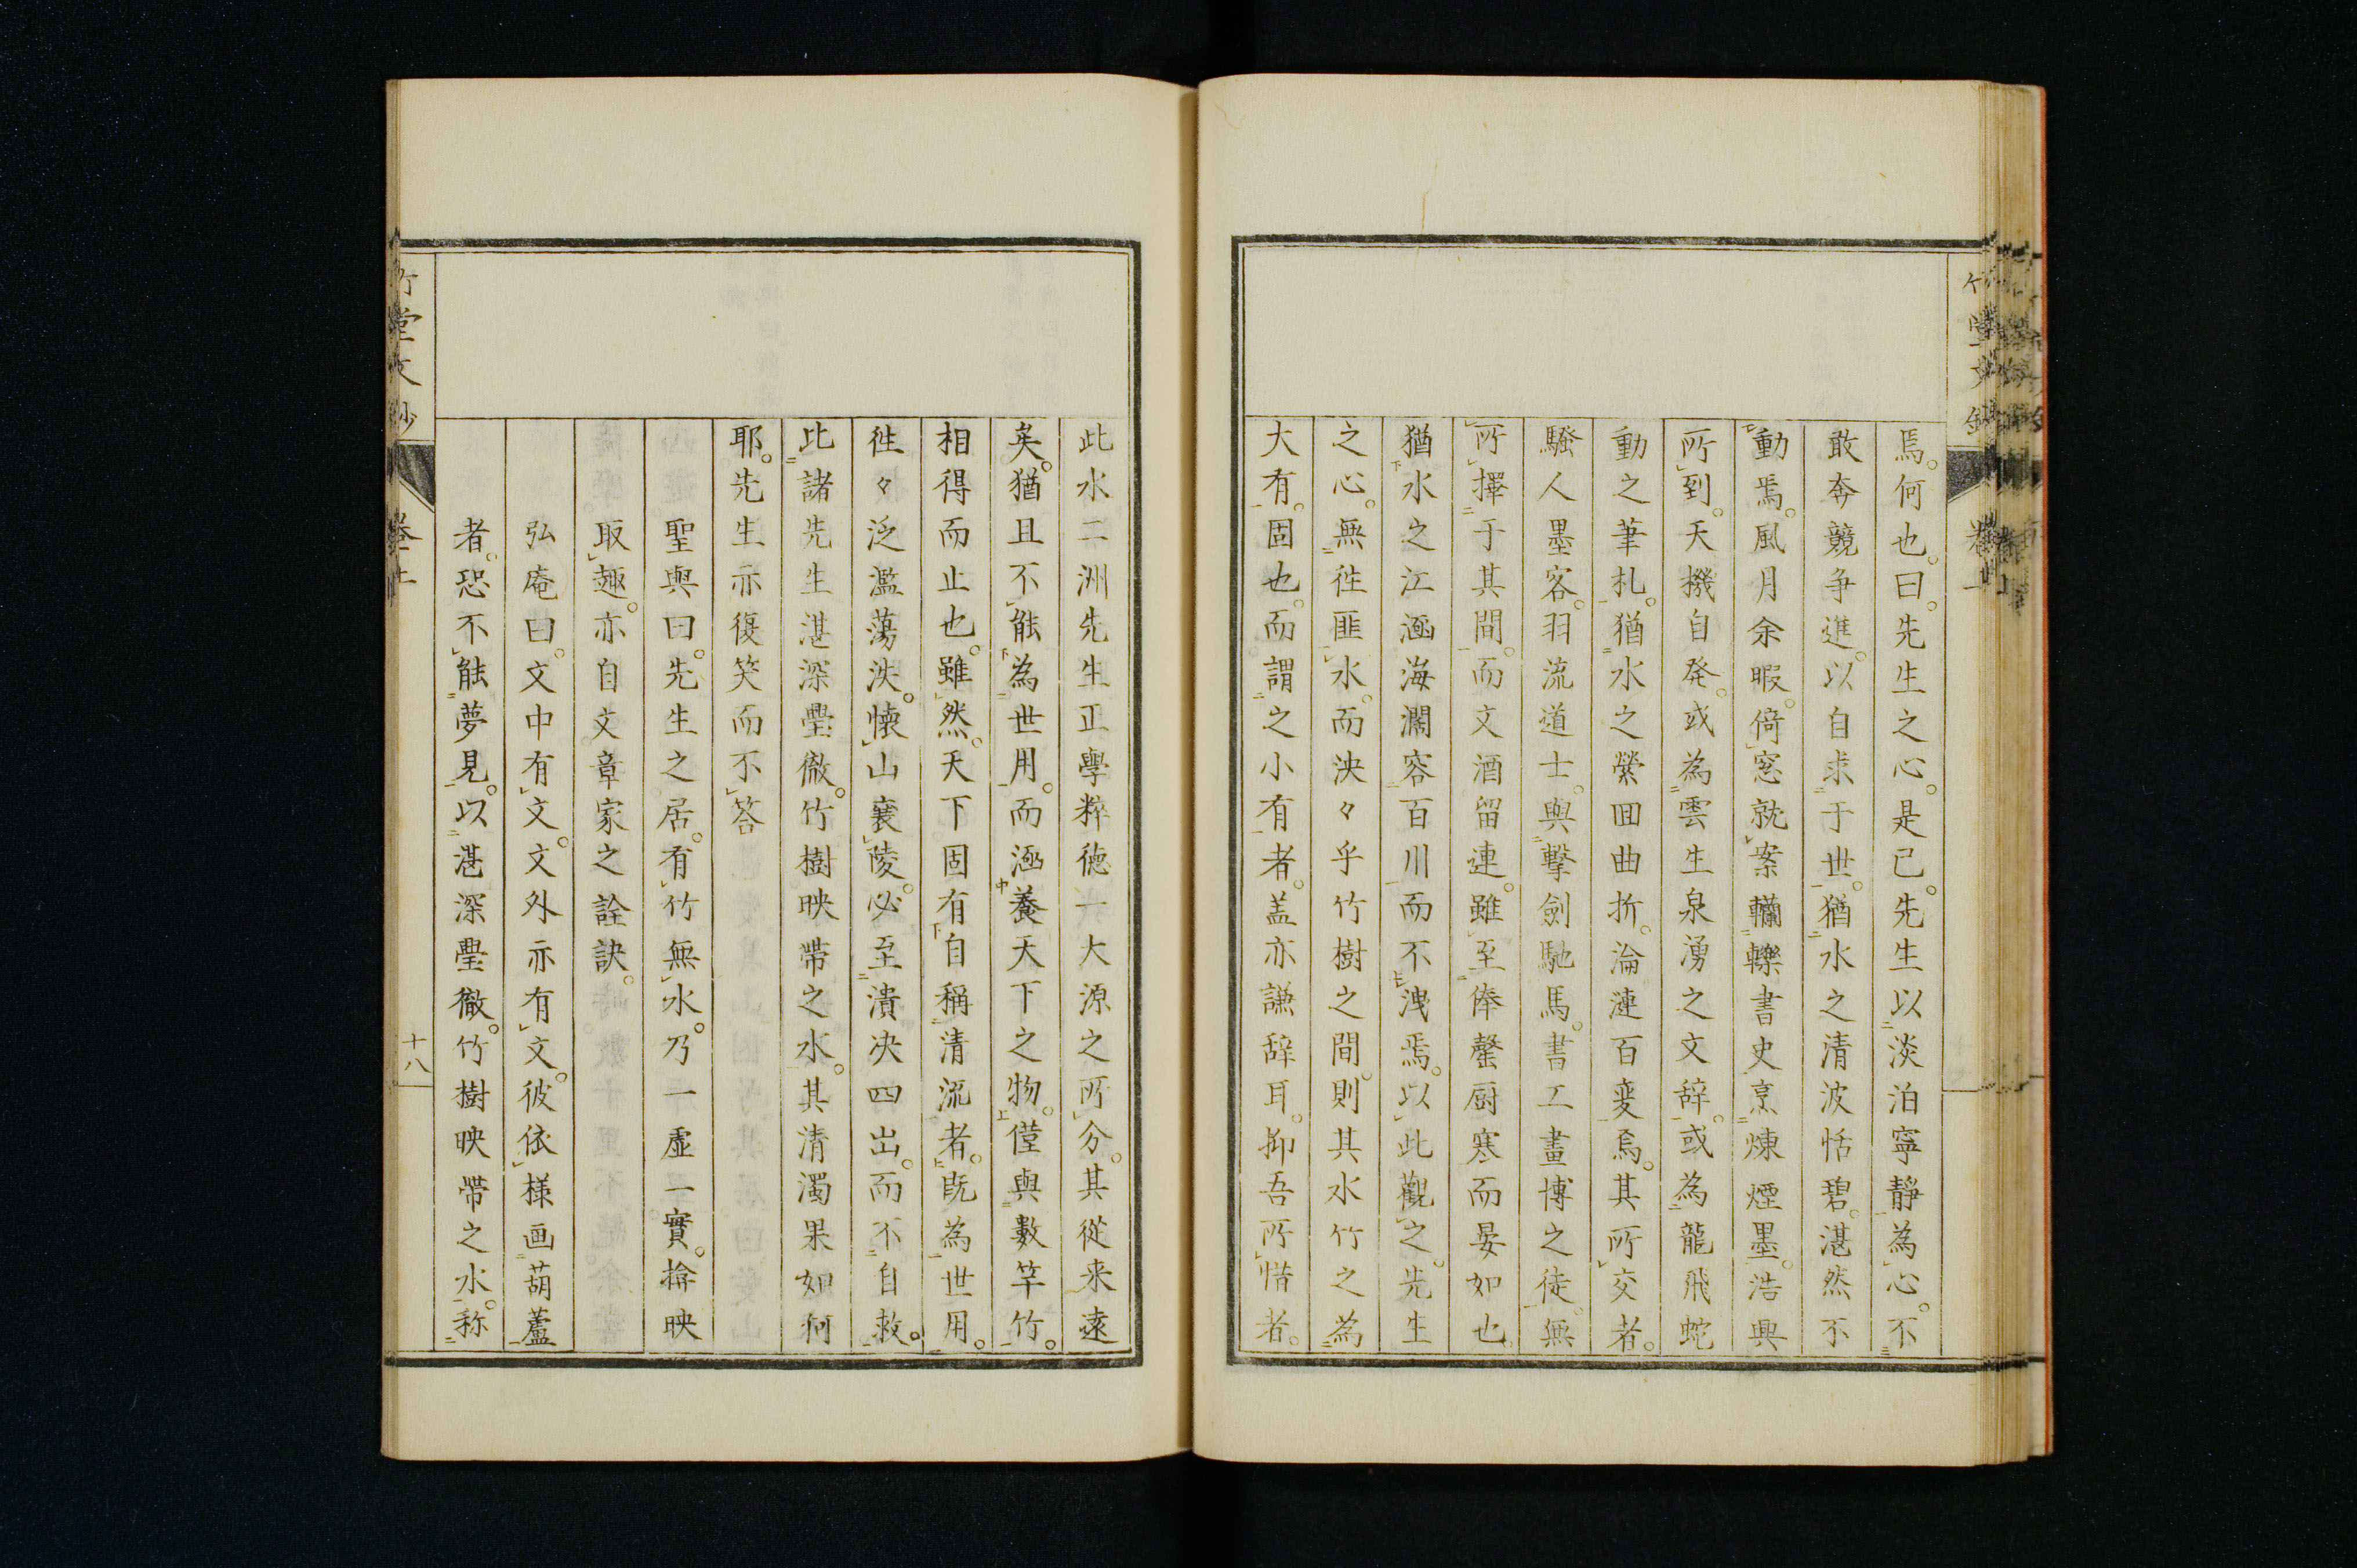 焉。何也。曰。先生之心。是已。先生以淡泊寧靜為心。不
敢奔競争進。以自求于世。猶水之清波恬碧。湛然不
動焉。風月余暇。倚窓就案。轥轢書史。烹煉煙墨。浩興
所到。天機自発。或為雲生泉湧之文辞。或為龍飛蛇
動之筆札。猶水之縈回曲折。淪漣百変焉。其所交者。
騷人墨客。羽流道士。與撃劍馳馬。書工畫博之徒。無
所擇于其間。而文酒留連。雖至俸罄厨寒而晏如也。
猶水之江涵海濶容百川而不洩焉。以此觀之。先生
之心。無徃匪水。而泱々乎竹樹之間。則其水竹之為
大有。固也。而謂之小有者。盖亦謙辞耳。抑吾所惜者。
此水二洲先生正學粹德一大源之所分。其從来遠
矣。猶且不能為世用。而涵養天下之物。僅與數竿竹。
相得而止也。雖然。天下固有自稱清流者。既為世用。
徃々泛濫蕩泆。懐山襄陵。必至潰决四出。而不自救。
比諸先生湛深瑩徹。竹樹映帶之水。其清濁果如何
耶。先生亦復笑而不答
聖輿曰。先生之居。有竹無水。乃一虚一實。揜映
取趣。亦自文章家之詮訣。
弘庵曰。文中有文。文外亦有文。彼依様画葫蘆
者。恐不能夢見。以湛深瑩徹。竹樹映帶之水。称
竹堂文鈔
十八